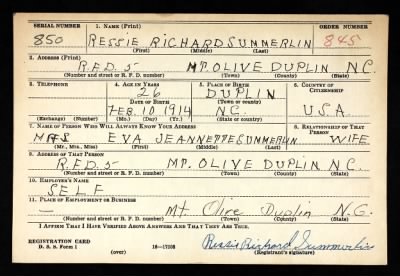 SERIAL NUMBER 1. NAME (Print) ORDER NUMBER
850 RESSIE RICHARD SUMMERLIN 845
(First) (Middle) (Last)
2. ADDRESS (Print)
R.F.D. 5- MT. OLIVE DUPLIN N.C.
(Number and street or R. F. D. number) (Town) (County) (State)
3. TELEPHONE 4. AGE IN YEARS 5. PLACE OF BIRTH 6. COUNTRY OF CITIZENSHIP
26 DUPLIN
DATE OF BIRTH (Town or county)
FEB. 10 1914 N.C. U.S.A.
(Exchange) (Number) (Mo.) (Day) (Yr.) (State or country)
7. NAME OF PERSON WHO WILL ALWAYS KNOW YOUR ADDRESS 8. RELATIONSHIP OF THAT PERSON
MRS EVA JEANNETTE SUMMERLIN WIFE
(Mr., Mrs., Miss) (First) (Middle) (Last)
9. ADDRESS OF THAT PERSON
R.F.D. 5- MT. OLIVE DUPLIN N.C.
(Number and street or R. F. D. number) (Town) (County) (State)
10. EMPLOYER'S NAME
SELF
11. PLACE OF EMPLOYMENT OR BUSINESS
— Mt. Olive Duplin N.C.
(Number and street or R. F. D. number) (Town) (County) (State)
I AFFIRM THAT I HAVE VERIFIED ABOVE ANSWERS AND THAT THEY ARE TRUE.
REGISTRATION CARD
D. S. S. Form 1 (over) 16—17105 Ressie Richard Summerlin
(Registrant's signature)